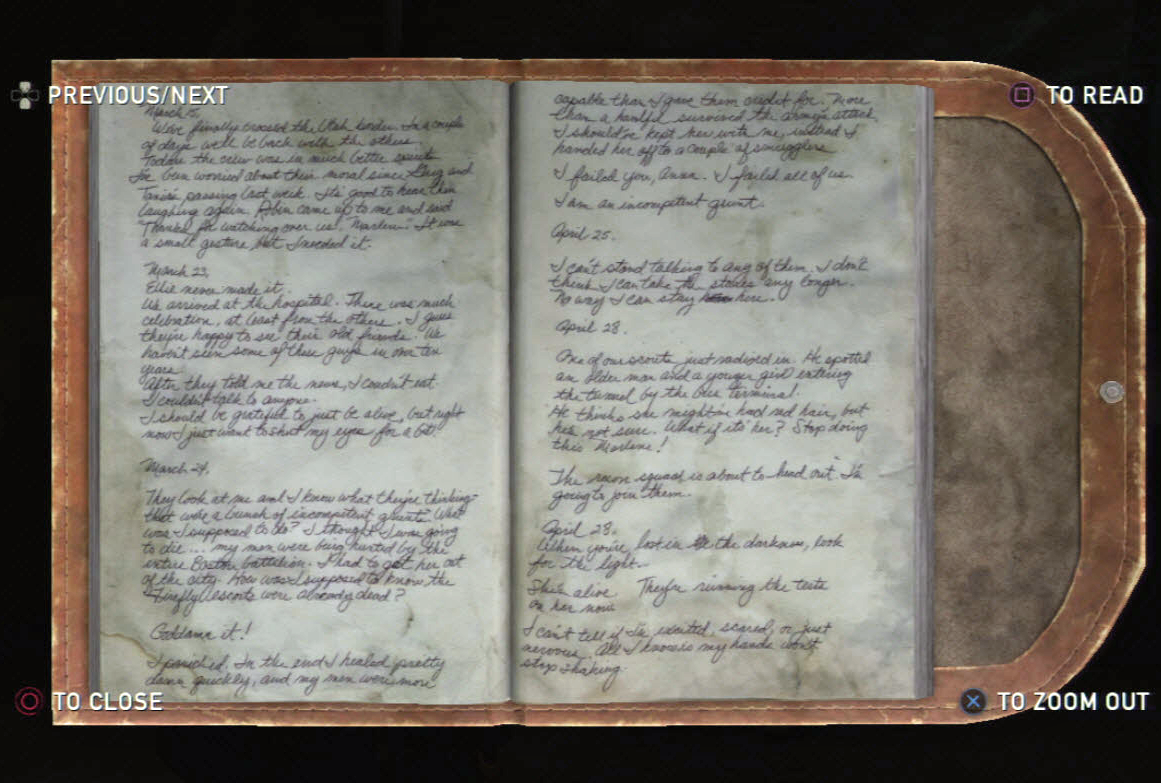 PREVIOUS/NEXT
TO READ
March 15.
We've finally crossed the Utah border. In a couple
of days we'll be back with the others.
Today the crew was in much better spirits
I've been worried about their moral since and
passing last week. It's good to hear them
laughing again. Robin came up to me and said
"Thanks for watching over us, Marlene". It was
a small gesture, but I needed it.
March 23.
Ellie never made it.
We arrived at the hospital. There was much
celebration, at least from the others. I guess
they're happy to see their old friends. We
haven't seen some of these guys in over ten
years.
After they told me the news, I couldn't eat.
I couldn't talk to anyone.
I should be grateful to just be alive, but right
now I just want to shut my eyes for a bit.
March 24.
They look at me and I know what they're thinking-
that we're a bunch of incompetent grunts. What
was I supposed to do? I thought I was going
to die... my men were being hunted by the
entire Boston battalion. I had to get her out
of the city. How was I supposed to know the
Firefly escorts were already dead?
Goddamn it!
I panicked. In the end I healed pretty
damn quickly, and my men were more
capable than I gave them credit for. More
than a handful survived the army's attack.
I should've kept her with me, instead I
handed her off to a couple of smugglers.
I failed you, Anna. I failed all of us.
I am an incompetent grunt.
April 25.
I can't stand talking to any of them. I don't
think I can take the stares any longer.
No way I can stay here.
April 28.
One of our scouts just radioed in. He spotted
an older man and a younger girl entering
the tunnel by the bus terminal.
He thinks she might've had red hair, but
he's not sure. What if it's her? Stop doing
this Marlene!
The recon squad is about to head out. I'm
going to join them.
April 28.
When you're lost in the darkness, look
for the light.
She's alive. They're running the tests
on her now.
I can't tell if I'm excited, scared, or just
nervous. All I know is my hands won't
stop shaking.
TO CLOSE
TO ZOOM OUT